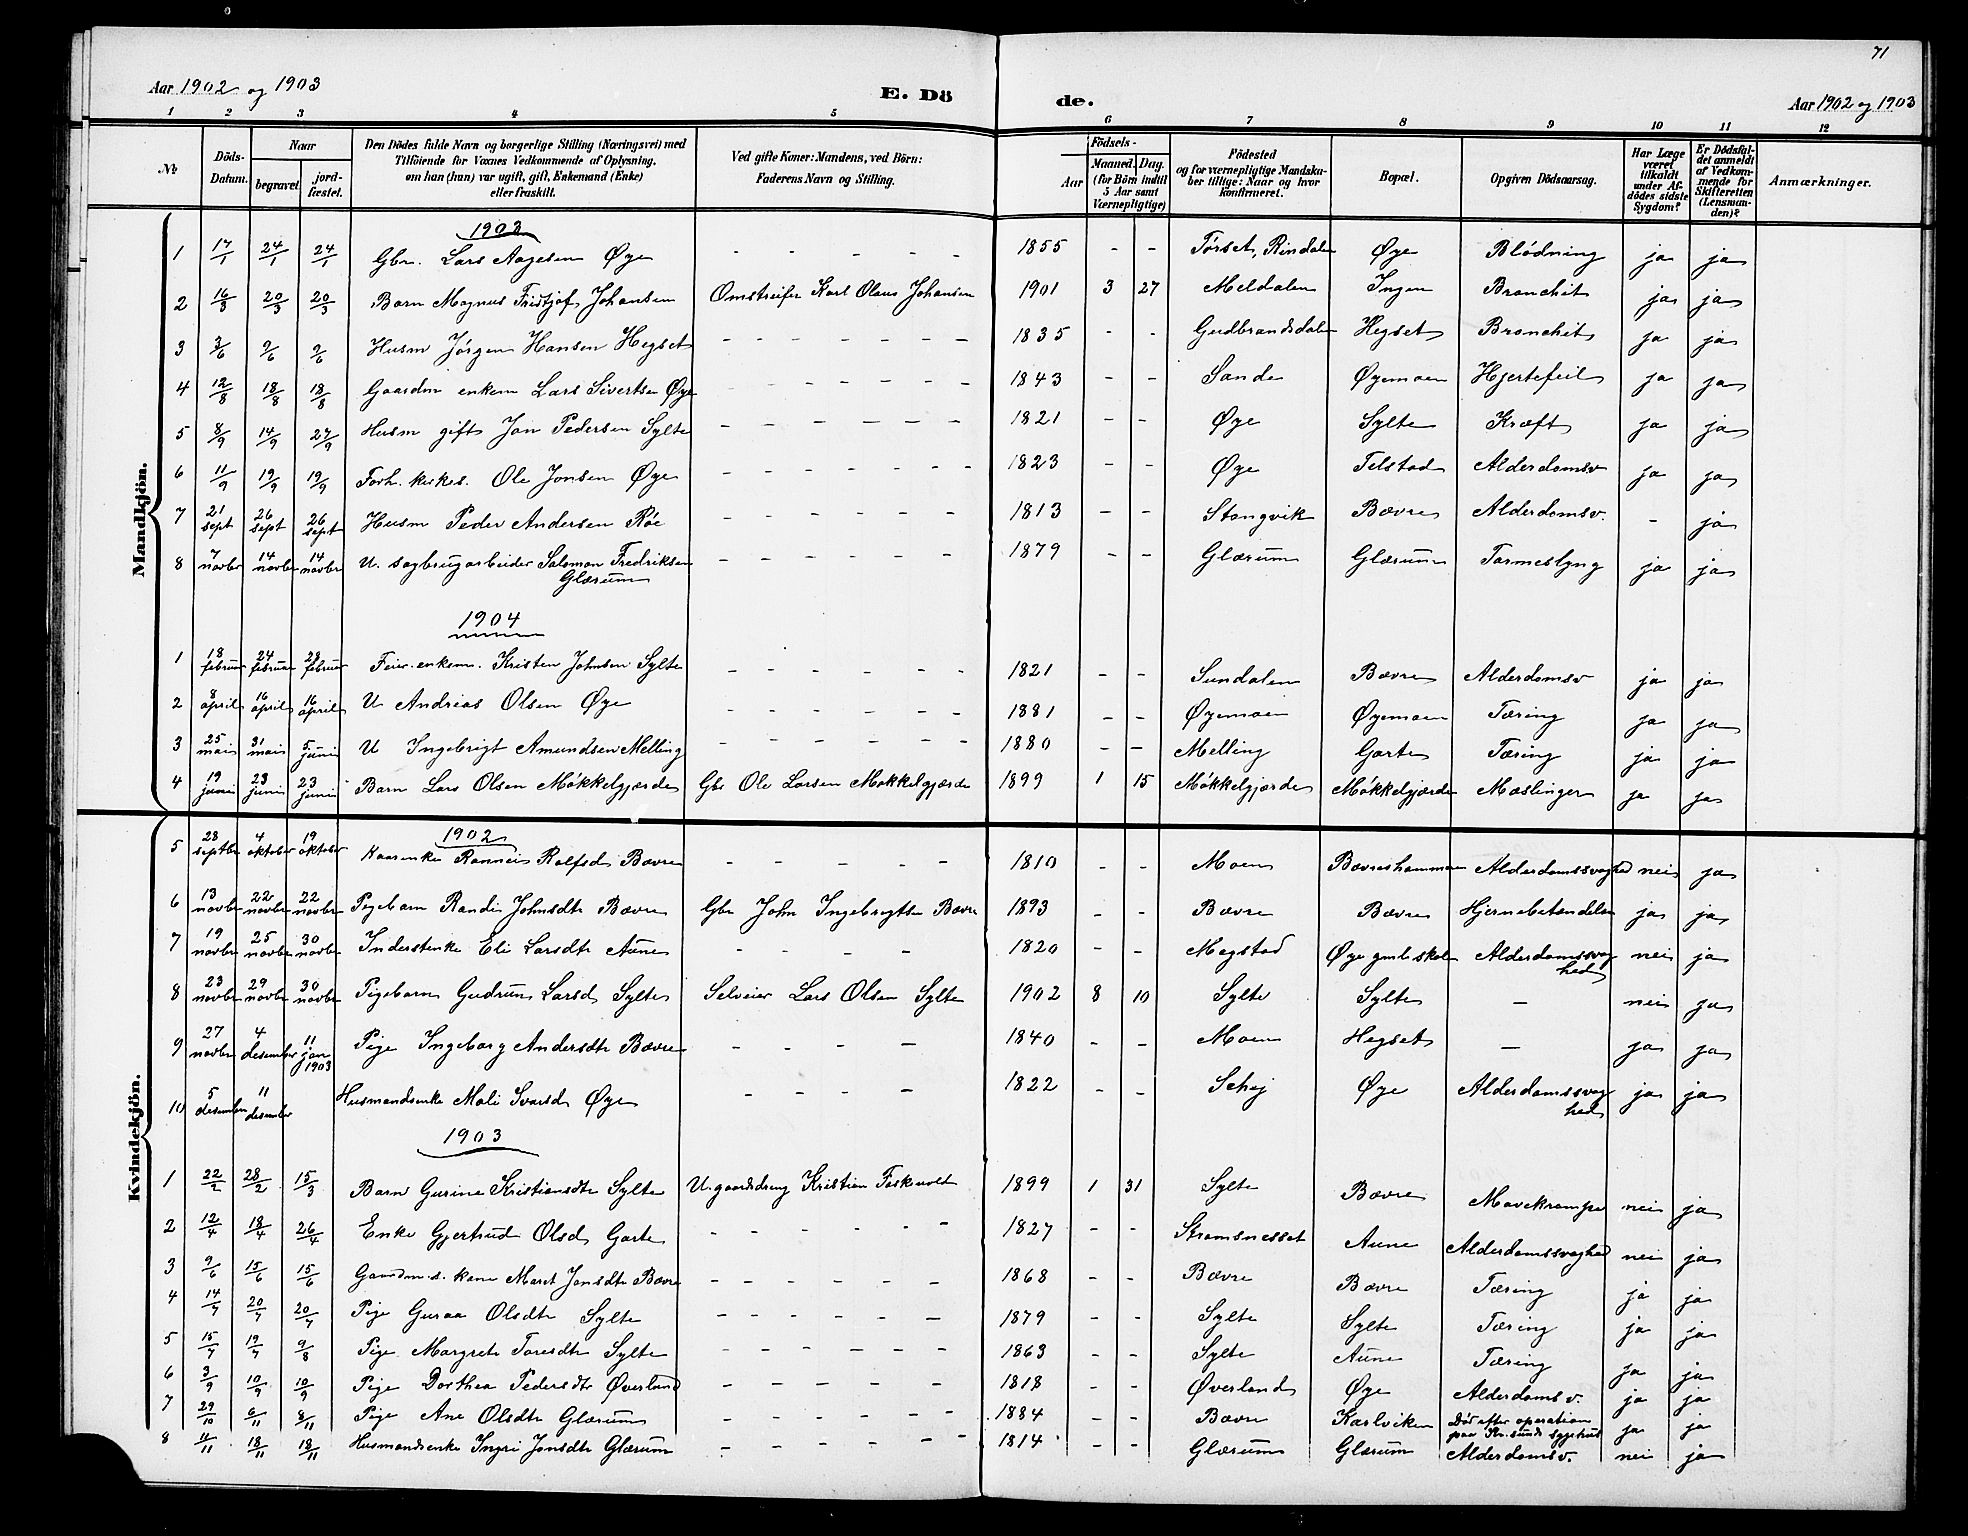 71
Aar 1902 og 1903 E. Dö de. Aar 1902 og 1903
1 2 3 4 5 6 7 8 9 10 11 12
No
Döds-Datum.
Naar begravet. jordfæstet.
Den Dödes fulde Navn og borgerlige Stilling (Næringsvei) med
Tilföiende for Voxnes Vedkommende af Oplysning,
om han (hun) var ugift, gift, Enkemand (Enke)
eller fraskilt.
Ved gifte Koner: Mandens, ved Börn:
Faderens Navn og Stilling.
Födsels-
Aar Maaned. Dag.
(for Börn indtil 5 Aar samt Værnepligtige)
Födested
og for værnepligtige Mandskaber tillige: Naar og hvor konfirmeret.
Bopæl.
Opgiven Dödsaarsag.
Har Læge været tilkaldt under Afdödes sidste Sygdom?
Er Dödsfaldet anmeldt af Vedkommende for Skifteretten (Lensmanden)?
Anmærkninger.
Mandkjön.
1903
1 17/1 24/1 24/1 Gbr. Lars Aagesen Øye - - - - - 1855 - - Tørset, Rindalen Øye Blödning ja ja
2 16/3 20/3 20/3 Barn Magnus Fristjof Johansen Omstreifer Karl Olaus Johansen 1901 3 27 Meldalen Ingen Bronchit ja ja
3 3/6 9/6 9/6 Husm Jörgen Hansen Hegset - - - - - - 1835 - - Gudbrandsdalen Hegset Bronchit ja ja
4 12/8 18/8 18/8 Gaardm enkem Lars Sivertsen Øye - - - - - - 1843 - - Sande Øyemoen Hjertefeil ja ja
5 8/9 14/9 27/9 Husm gift Jon Pedersen Sylte - - - - - - 1821 - - Øye Sylte Kræft ja ja
6 11/9 19/9 19/9 Forh. kirkes. Ole Jonsen Øye - - - - - - 1823 - - Øye Telstad Alderdomsv ja ja
7 21 sept 26 sept 26 sept Husm Peder Andersen Röe - - - - - - 1813 - - Stangvik Bævre Alderdomsv. - ja
8 7 novbr 14 novbr 14 novbr U. sagbrugarbeider Salomon Fredriksen Glærum - - - - - - 1879 - - Glærum Glærum Tarmeslyng ja ja
1904
1 18 februar 24 februar 28 februar Feier. enkem. Kristen Johnsen Sylte - - - - - 1821 - - Sundalen Bævre Alderdomsv ja ja
2 8 april 16 april 16 april U Andreas Olsen Øye - - - - - 1881 - - Øyemoen Øyemoen Tæring ja ja
3 25 mai 31 mai 5 juni U Ingebrigt Amundsen Melling - - - - - 1880 - - Melling Garte Tæring ja ja
4 19 juni 23 juni 23 juni Barn Lars Olsen Mökkelgjærde Gbr Ole Larsen Mökkelgjærde 1899 1 15 Mökkelgjærde Mökkelgjærde Mæslinger ja ja
Kvindekjön.
1902
5 28 septbr 4 oktober 19 oktober Kaarenke Rannei Rolfsd Bævre - - - - 1810 - - Moen Bævreshammeren Alderdomssvaghed nei ja
6 13 novbr 22 novbr 22 novbr Pigebarn Randi Johnsdtr Bævre Gbr John Ingebrigtsen Bævre 1893 - - Bævre Bævre Hjernebetændelse ja ja
7 19 novbr 25 novbr 30 novbr Inderstenke Eli Larsdtr Aune - - - - 1820 - - Megstad Øye gml. skole Alderdomssvaghed nei ja
8 23 novbr 29 novbr 30 novbr Pigebarn Gudrun Larsd Sylte Selveier Lars Olsen Sylte 1902 8 10 Sylte Sylte - nei ja
9 27 novbr 4 desember 11 jan 1903 Pige Ingeborg Andersdtr Bævre - - - - 1840 - - Moen Hegset - ja ja
10 5 desember 11 desember Husmandsenke Mali Ivarsd Øye - - - - 1822 - - Schej Øye Alderdomssvaghed ja ja
1903
1 22/2 28/2 15/3 Barn Gurine Kristiansdtr Sylte U. gaardsdreng Kristian Fiskvolt 1899 1 31 Sylte Bævre Mavekrampe nei ja
2 12/4 18/4 26/4 Enke Gjertrud Olsd Garte - - - - - 1827 - - Stromsnesset Aune Alderdomssvaghed nei ja
3 9/6 15/6 15/6 Gaardm.s. kone Maret Jonsdtr Bævre - - - - - 1868 - - Bævre Bævre Tæring ja ja
4 14/7 20/7 20/7 Pige Guraa Olsdtr Sylte - - - - - - 1879 - - Sylte Sylte Tæring ja ja
5 15/7 19/7 9/8 Pige Margrete Toresdtr Sylte - - - - - - 1863 - - Sylte Aune Tæring ja ja
6 3/9 10/9 10/9 Pige Dorthea Pedersdtr Øverland - - - - - 1818 - - Øverland Øye Alderdomsv. ja ja
7 29/10 6/11 8/11 Pige Ane Olsdtr Glærum - - - - - 1884 - - Bævre Karlviken Död efter operation paa Kr.sunds sygehus ja ja
8 11/11 18/11 18/11 Husmandsenke Ingri Jonsdtr Glærum - - - - - 1814 - - Glærum Glærum Alderdomsv. nei ja